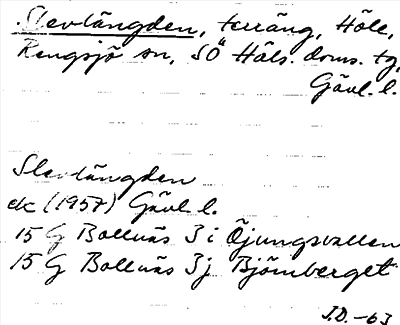 Slevlängden, terräng, Höle,
Rengsjö sn, SÖ Häls. doms. tg,
Gävl. l.
Slevlängden
ek (1957) Gävl l.
15 G Bollnäs 3 i Öjungsvallen
15 G Bollnäs 3 j Björnberget
J.D. -63